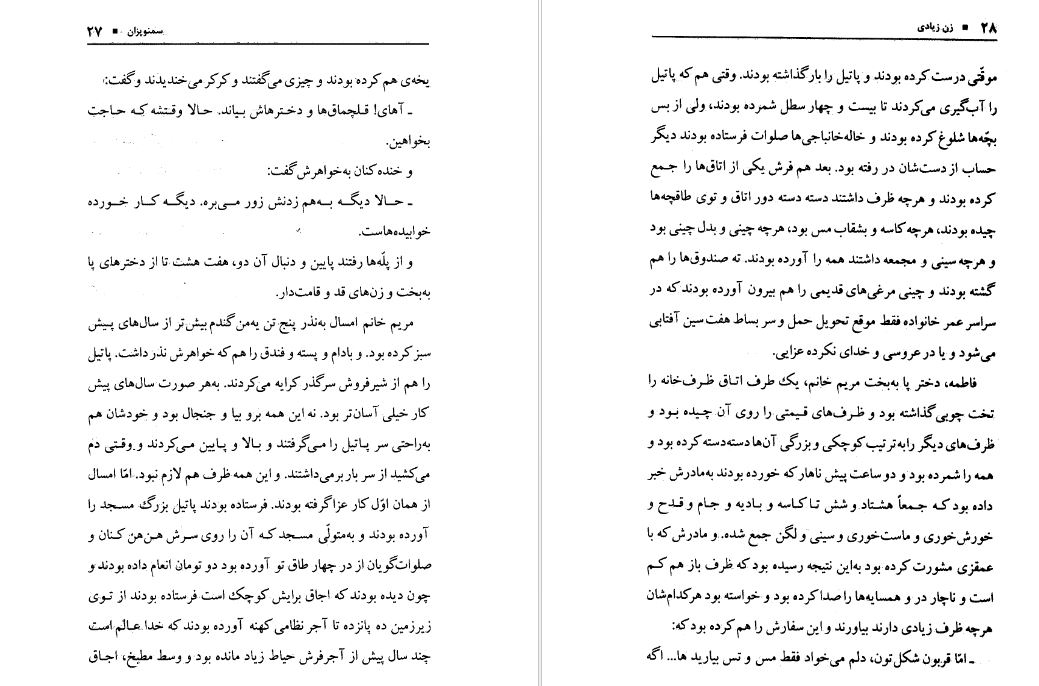 سمنوپزان ■ ۲۷
یخه‌ی هم کرده بودند و چیزی می‌گفتند و کرکر می‌خندیدند وگفت:
ـ آهای! قلچماق‌ها و دخترهاش بیاند. حالا وقتشه که حاجت
بخواهین.
و خنده‌کنان به‌خواهرش گفت:
ـ حالا دیگه به‌هم زدنش زور می‌بره. دیگه کار خورده
خوابیده‌هاست.
و از پلّه‌ها رفتند پایین و دنبال آن دو، هفت هشت تا از دخترهای پا
به‌بخت و زن‌های قد و قامت‌دار.
مریم خانم امسال به‌نذر پنج تن یه‌من گندم بیش‌تر از سال‌های پیش
سبز کرده بود. و بادام و پسته و فندق را هم که خواهرش نذر داشت. پاتیل
را هم از شیرفروش سرگذر کرایه می‌کردند. به‌هر صورت سال‌های پیش
کار خیلی آسان‌تر بود. نه این همه برو بیا و جنجال بود و خودشان هم
به‌راحتی سر پاتیل را می‌گرفتند و بالا و پایین می‌کردند و وقتی دم
می‌کشید از سر بار برمی‌داشتند. و این همه ظرف هم لازم نبود. امّا امسال
از همان اوّل کار عزا گرفته بودند. فرستاده بودند پاتیل بزرگ مسجد را
آورده بودند و به‌متولّی مسجد که آن را روی سرش هن‌هن کنان و
صلوات‌گویان از در چهار طاق تو آورده بود دو تومان انعام داده بودند و
چون دیده بودند که اجاق برایش کوچک است فرستاده بودند از توی
زیرزمین ده پانزده تا آجر نظامی کهنه آورده بودند که خدا عالم است
چند سال پیش از آجرفرش حیاط زیاد مانده بود و وسط مطبخ، اجاق
۲۸ ■ زن زیادی
موقّتی درست کرده بودند و پاتیل را بار گذاشته بودند. وقتی هم که پاتیل
را آب‌گیری می‌کردند تا بیست و چهار سطل شمرده بودند، ولی از بس
بچّه‌ها شلوغ کرده بودند و خاله‌خانباجی‌ها صلوات فرستاده بودند دیگر
حساب از دست‌شان در رفته بود. بعد هم فرش یکی از اتاق‌ها را جمع
کرده بودند و هرچه ظرف داشتند دسته دسته دور اتاق و توی طاقچه‌ها
چیده بودند، هرچه کاسه و بشقاب مس بود، هرچه چینی و بدل چینی بود
و هرچه سینی و مجمعه داشتند همه را آورده بودند. ته صندوق‌ها را هم
گشته بودند و چینی مرغی‌های قدیمی را هم بیرون آورده بودند که در
سراسر عمر خانواده فقط موقع تحویل حمل و سر بساط هفت‌سین آفتابی
می‌شود و یا در عروسی و خدای نکرده عزایی.
فاطمه، دختر پا به‌بخت مریم خانم، یک طرف اتاق ظرف‌خانه را
تخت چوبی گذاشته بود و ظرف‌های قیمتی را روی آن چیده بود و
ظرف‌های دیگر را به‌ترتیب کوچکی و بزرگی آن‌ها دسته‌دسته کرده بود و
همه را شمرده بود و دو ساعت پیش ناهار که خورده بودند به‌مادرش خبر
داده بود که جمعاً هشتاد و شش تا کاسه و بادیه و جام و قدح و
خورش‌خوری و ماست‌خوری و سینی و لگن جمع شده. و مادرش که با
عمقزی مشورت کرده بود به‌این نتیجه رسیده بود که ظرف باز هم کم
است و ناچار در و همسایه‌ها را صدا کرده بود و خواسته بود هرکدام‌شان
هرچه ظرف زیادی دارند بیاورند و این سفارش را هم کرده بود که:
ـ امّا قربون شکل‌تون، دلم می‌خواد فقط مس و تس بیارید ها... اگه